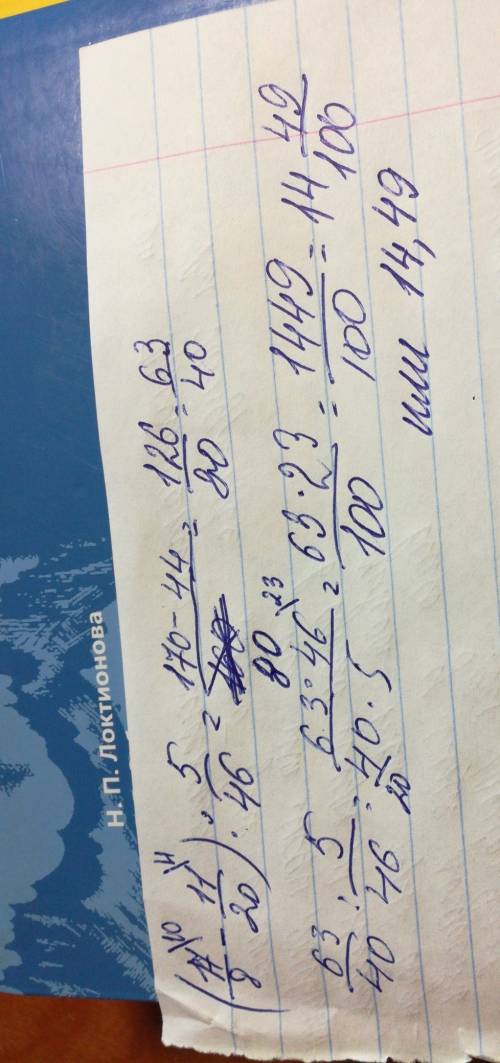 Н. П. Локтионова
(17\10/8 - 11\4/20) : 5/46 = (170 - 44)/80 = 126/80 = 63/40
63/40 : 5/46 = (63 · 46\23)/(40 · 5) = (63 · 23)/100 = 1449/100 = 14 49/100
20
или 14,49